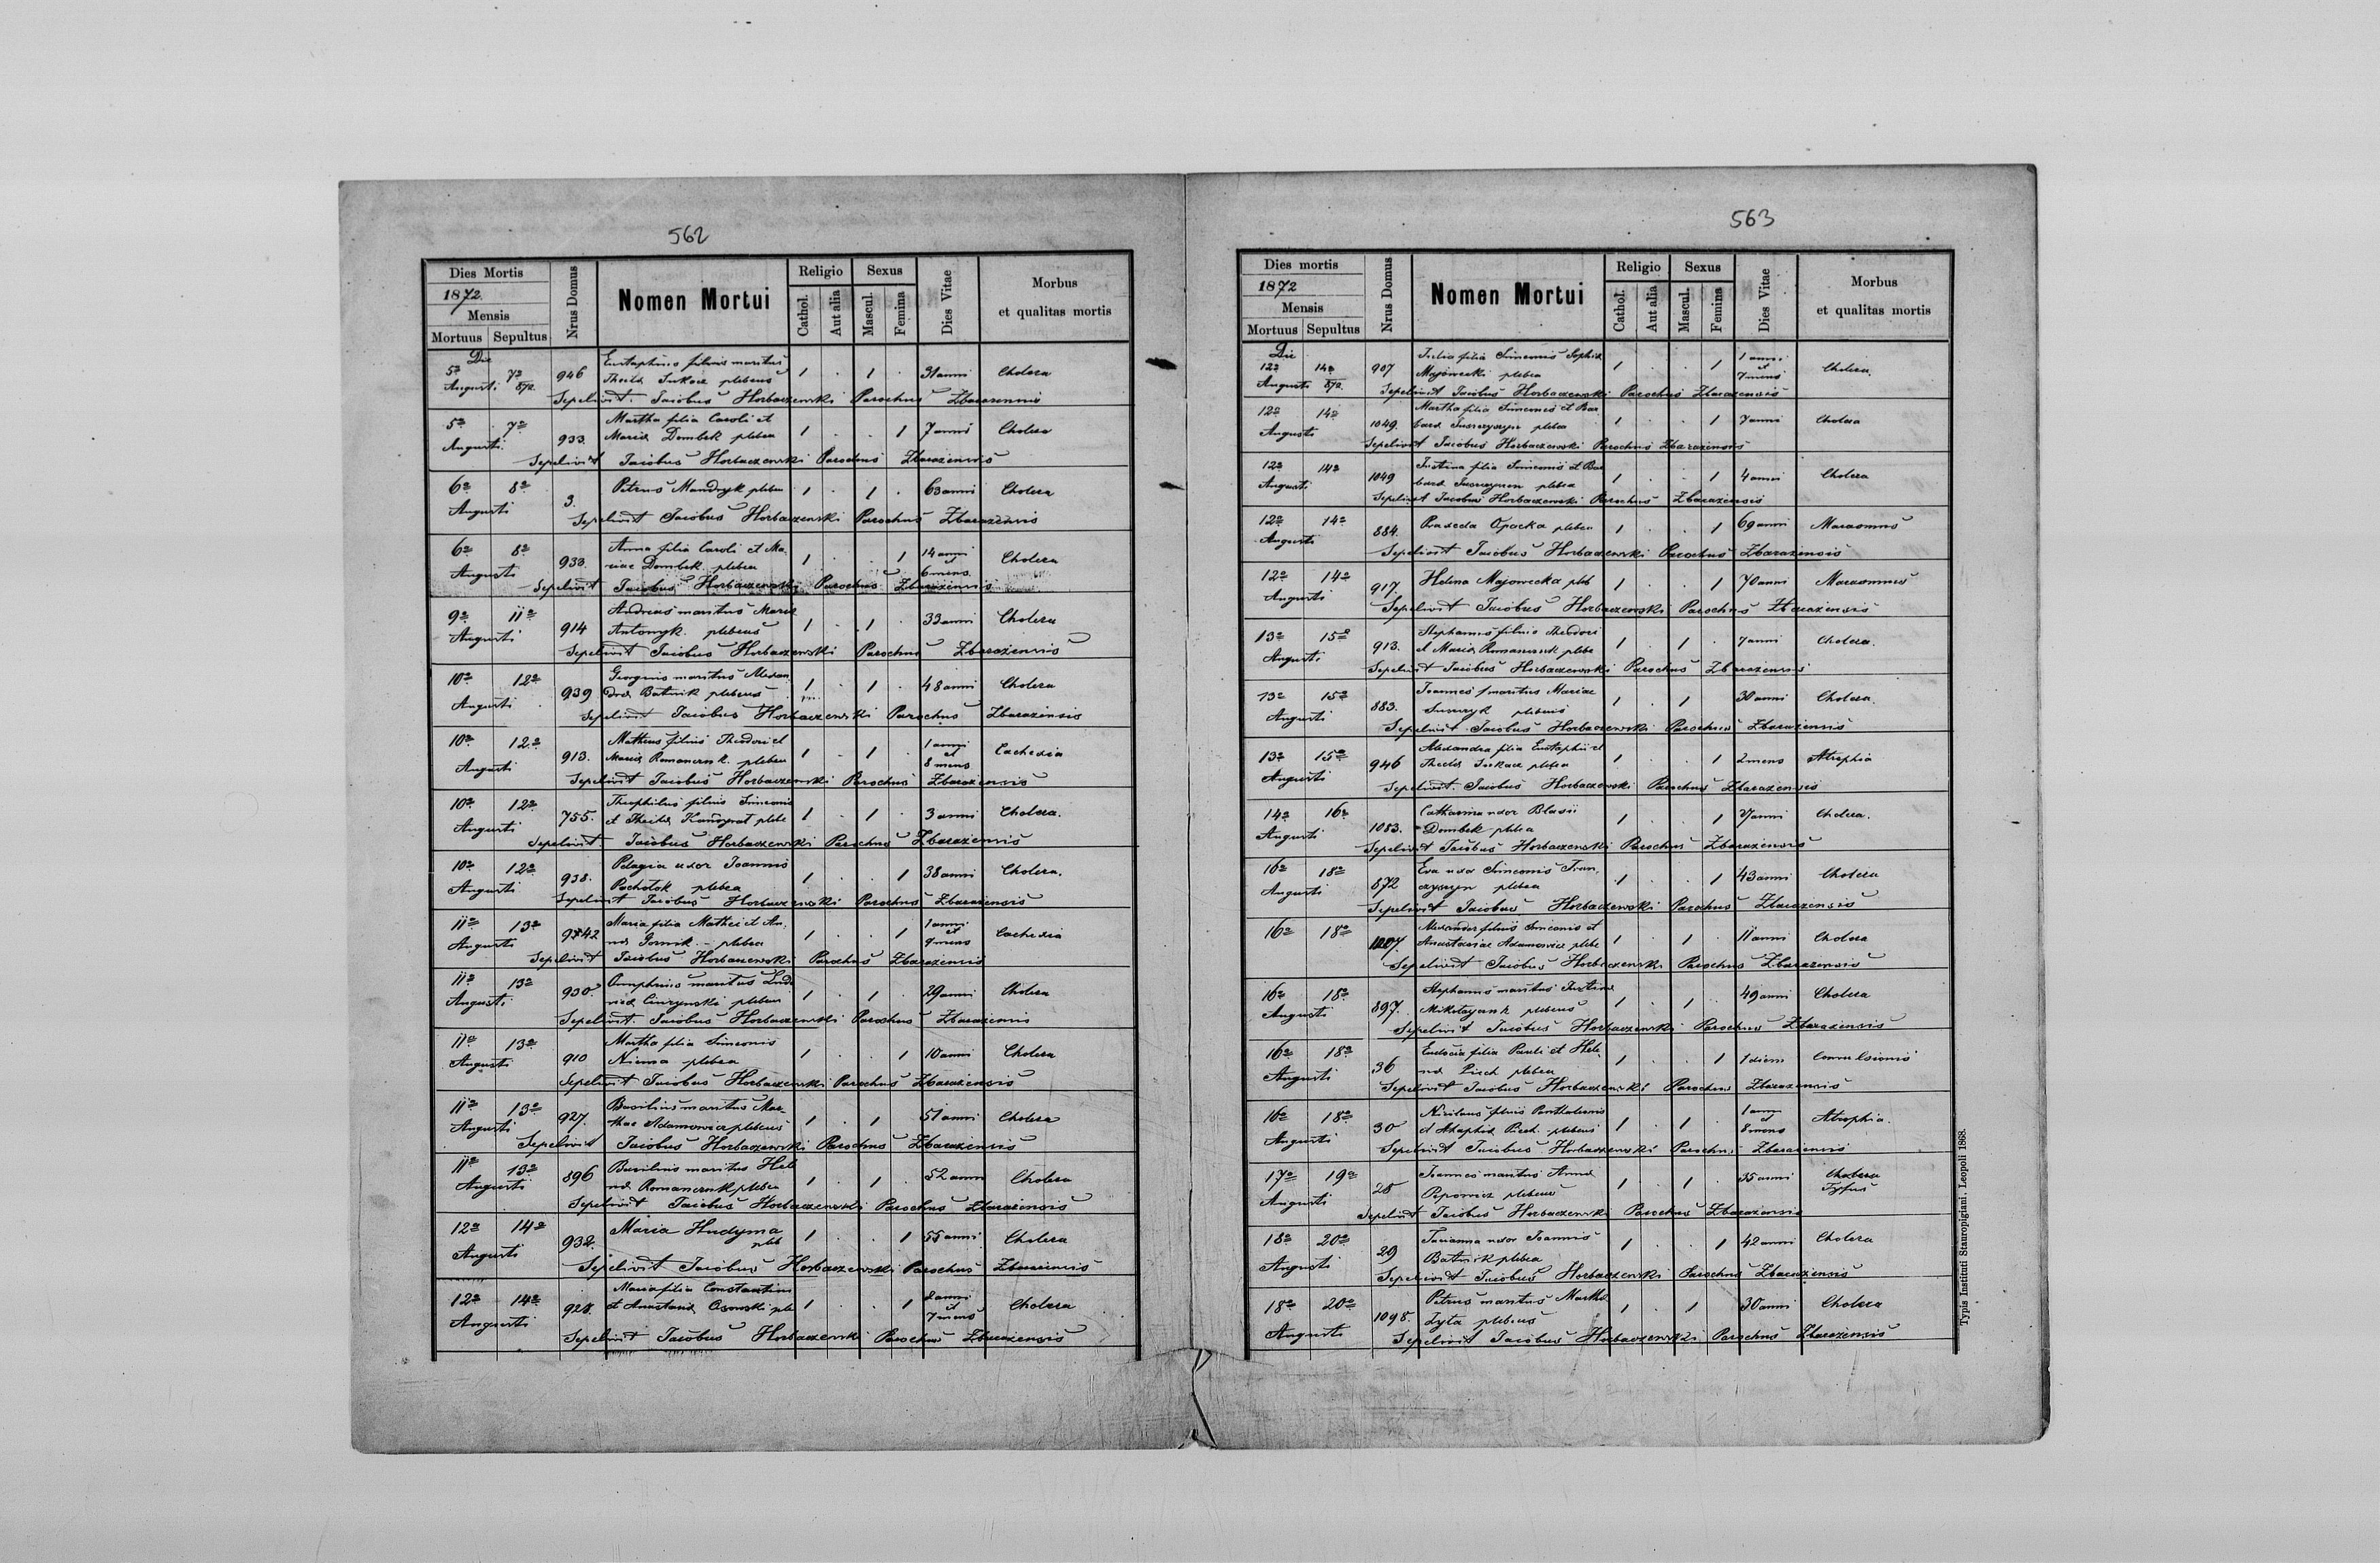 562
Dies Mortis
1872
Mensis
Mortuus Sepultus
Nrus Domus
Nomen Mortui
Religio
Cathol.
Aut alia
Sexus
Mascul.
Femina
Dies Vitae
Morbus
et qualitas mortis
Die
5a 7a 946 filius maritus 1 . 1 . 31 anni Cholera
Augusti 872. plebeus
Sepelivit Jacobus Horbaczewski Parochus Zbarazensis
5a 7a 933. Martha filia Caroli et 1 . . 1 7 anni Cholera
Augusti Maria Dombek plebea
Sepelivit Jacobus Horbaczewski Parochus Zbarazensis
6a 8a 3. Petrus Mandryk plebeu 1 . 1 . 63 anni Cholera
Augusti
Sepelivit Jacobus Horbaczewski Parochus Zbarazensis
6a 8a 933. Anna filia Caroli et Ma- 1 . . 1 14 anni Cholera
Augusti riae Dombek plebea et 6 mens
Sepelivit Jacobus Horbaczewski Parochus Zbarazensis
9a 11a 914 Andreas maritus Maria 1 . 1 . 33 anni Cholera
Augusti Antonyk plebeus
Sepelivit Jacobus Horbaczewski Parochus Zbarazensis
10a 12a 939 Georgius maritus Alexan 1 . 1 . 48 anni Cholera
Augusti dra Batnik plebeus
Sepelivit Jacobus Horbaczewski Parochus Zbarazensis
10a 12a 913. Matheus filius Theodori et 1 . 1 1 anni et 8 mens Cachexia
Augusti Maria Romanczuk plebeu
Sepelivit Jacobus Horbaczewski Parochus Zbarazensis
10a 12a 755. Theophilus filius Simeonis 1 . 1 . 3 anni Cholera.
Augusti et plebe
Sepelivit Jacobus Horbaczewski Parochus Zbarazensis
10a 12a 938. Pelagia uxor Joannis 1 . . 1 38 anni Cholera.
Augusti Pochotok plebea
Sepelivit Jacobus Horbaczewski Parochus Zbarazensis
11a 13a Maria filia Mathei et An- 1 . . 1 1 anni et 9 mens Cachexia
Augusti na Gornik plebea
Sepelivit Jacobus Horbaczewski Parochus Zbarazensis
11a 13a 930. Onuphrius maritus 1 . 1 . 29 anni Cholera
Augusti plebeus
Sepelivit Jacobus Horbaczewski Parochus Zbarazensis
11a 13a 910 Martha filia Simeonis 1 . . 1 10 anni Cholera
Augusti plebea
Sepelivit Jacobus Horbaczewski Parochus Zbarazensis
11a 13a 927. Basilius maritus Mar- 1 . 1 51 anni Cholera
Augusti thae Adamowicz plebeus
Sepelivit Jacobus Horbaczewski Parochus Zbarazensis
11a 13a 896 Basilius maritus Hele 1 . 1 . 52 anni Cholera
Augusti na Romanczuk plebea
Sepelivit Jacobus Horbaczewski Parochus Zbarazensis
12a 14a 932. Maria Hudyma 1 . . 1 55 anni Cholera
Augusti pleb
Sepelivit Jacobus Horbaczewski Parochus Zbarazensis
12a 14a 928. Maria filia Constantini 1 . . 1 2 anni et 7 mens Cholera
Augusti et Anastasia ple
Sepelivit Jacobus Horbaczewski Parochus Zbarazensis
563
Dies mortis
1872
Mensis
Mortuus Sepultus
Nrus Domus
Nomen Mortui
Religio
Cathol.
Aut alia
Sexus
Mascul.
Femina
Dies Vitae
Morbus
et qualitas mortis
Die
12a 14a 907 Julia filia Simeonis Sophia 1 . . 1 1 anni et 7 mens Cholera.
Augusti 872. Majowecki plebea
Sepelivit Jacobus Horbaczewski Parochus Zbarazensis
12a 14a 1049. Martha filia Simeonis et Bar 1 . . 1 7 anni Cholera
Augusti bara plebea
Sepelivit Jacobus Horbaczewski Parochus Zbarazensis
12a 14a 1049 Justina filia Simeonis et Bar 1 . . 1 4 anni Cholera
Augusti bara plebea
Sepelivit Jacobus Horbaczewski Parochus Zbarazensis
12a 14a 884. Praxeda Opacka plebea 1 . . 1 69 anni Marasmus
Augusti
Sepelivit Jacobus Horbaczewski Parochus Zbarazensis
12a 14a 917. Helena Majowecka pleb 1 . . 1 70 anni Marasmus
Augusti
Sepelivit Jacobus Horbaczewski Parochus Zbarazensis
13a 15a 913. Stephanus filius Theodori 1 . 1 . 7 anni Cholera.
Augusti et Maria Romanczuk plebe
Sepelivit Jacobus Horbaczewski Parochus Zbarazensis
13a 15a 883. Joannes maritus Mariae 1 . 1 30 anni Cholera.
Augusti plebeus
Sepelivit Jacobus Horbaczewski Parochus Zbarazensis
13a 15a 946 Alexandra filia Eustaphii et 1 . . 1 2 mens Atrophia
Augusti plebea
Sepelivit Jacobus Horbaczewski Parochus Zbarazensis
14a 16a 1083. Catharina uxor Blasii 1 . . 1 anni Cholera.
Augusti Dombek plebea
Sepelivit Jacobus Horbaczewski Parochus Zbarazensis
16a 18a 872 Eva uxor Simeonis 1 . . 1 43 anni Cholera
Augusti plebea
Sepelivit Jacobus Horbaczewski Parochus Zbarazensis
16a 18a Alexander filius Simeonis et 1 . 1 . 11 anni Cholera
Anastasiae Adamowicz plebe
Sepelivit Jacobus Horbaczewski Parochus Zbarazensis
16a 18a 897. Stephanus maritus Justina 1 . 1 . 49 anni Cholera
Augusti Mikołajczuk plebeus
Sepelivit Jacobus Horbaczewski Parochus Zbarazensis
16a 18a 36 Eudocia filia Pauli et Hele 1 . . 1 1 diem Convulsionis
Augusti na plebea
Sepelivit Jacobus Horbaczewski Parochus Zbarazensis
16a 18a 30 Nicolaus filius 1 . 1 . 1 anni et 8 mens Atrophia.
Augusti et plebeus
Sepelivit Jacobus Horbaczewski Parochus Zbarazensis
17a 19a 28 Joannes maritus Anna 1 . 1 . 35 anni Cholera
Augusti Popowicz plebeus Tyfus
Sepelivit Jacobus Horbaczewski Parochus Zbarazensis
18a 20a 29 uxor Joannis 1 . . 1 42 anni Cholera
Augusti Batnik plebea
Sepelivit Jacobus Horbaczewski Parochus Zbarazensis
18a 20a 1098. Petrus maritus Martha 1 . 1 30 anni Cholera
Augusti Zyta plebeus
Sepelivit Jacobus Horbaczewski Parochus Zbarazensis
Typis Instituti Stauropigiani. Leopoli 1868.